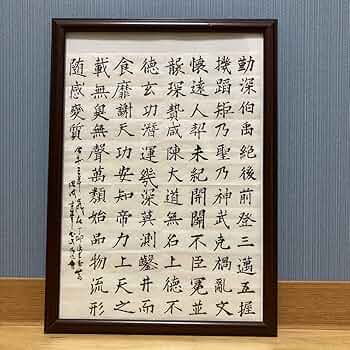 勤深伯禹絕後前登三邁五握
機蹈矩乃聖乃神武克禍亂文
懷遠人未紀開闢不臣冕並
襲琛贄咸陳大道無名上德不
德玄功潛運幾深莫測鑿井而
食靡謝天功安知帝力上天之
載無臭無聲萬類始品物流形
隨感變質